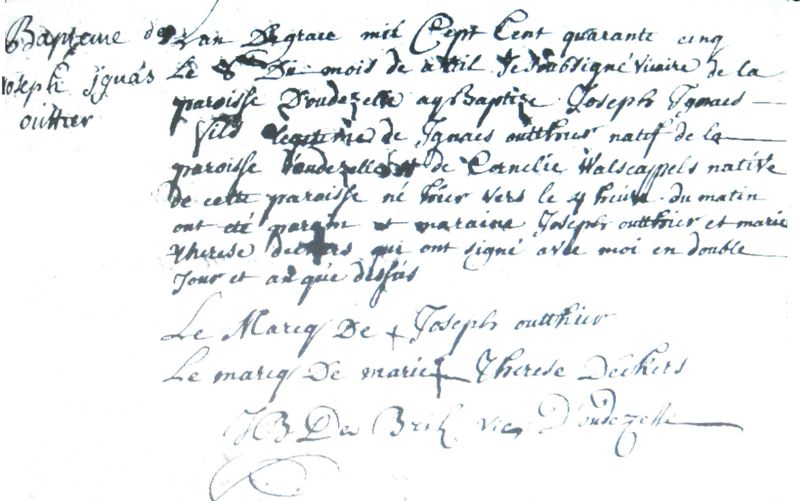 Bapteme de
Joseph Ignas
outtier
Lan De grace mil Cept Cent quarante cinq
Le 8e Du mois de avril Je soubsigné vicaire de la
paroisse D'oudezelle ay Baptize Joseph Ignaes
fils legitime de Ignaes outthier natif de la
paroisse D'oudezelle et de Cornelie Walscappels native
de cette paroisse né hier vers le 4 heure du matin
ont eté parain et maraine Joseph outthier et marie
therese deckers qui ont signé avec moi en double
Jour et an que dessus
Le Marcq De + Joseph outthier
Le marcq De marie + Therese Deckers
JB De vic D'oudezelle